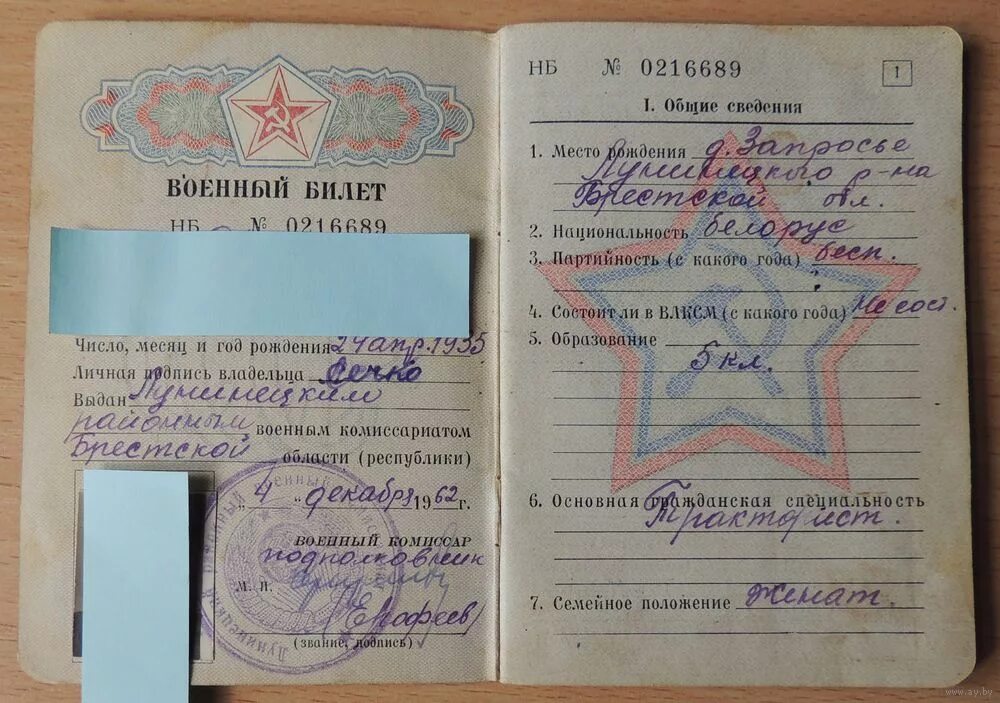 ВОЕННЫЙ БИЛЕТ
НБ № 0216689
Число, месяц и год рождения 24 апр. 1935
Личная подпись владельца Сечко
Выдан Лунинецким
районным военным комиссариатом
Брестской области (республики)
„4" декабря 1962 г.
ВОЕННЫЙ КОМИССАР
подполковник
М. П.
(Ерофеев)
(звание, подпись)
НБ № 0216689
1
I. Общие сведения
1. Место рождения д. Запросье
Лунинецкого р-на
Брестской обл.
2. Национальность белорус
3. Партийность (с какого года) бесп.
4. Состоит ли в ВЛКСМ (с какого года) Не сост.
5. Образование
5 кл.
6. Основная гражданская специальность
Тракторист.
7. Семейное положение женат.
www.ay.by